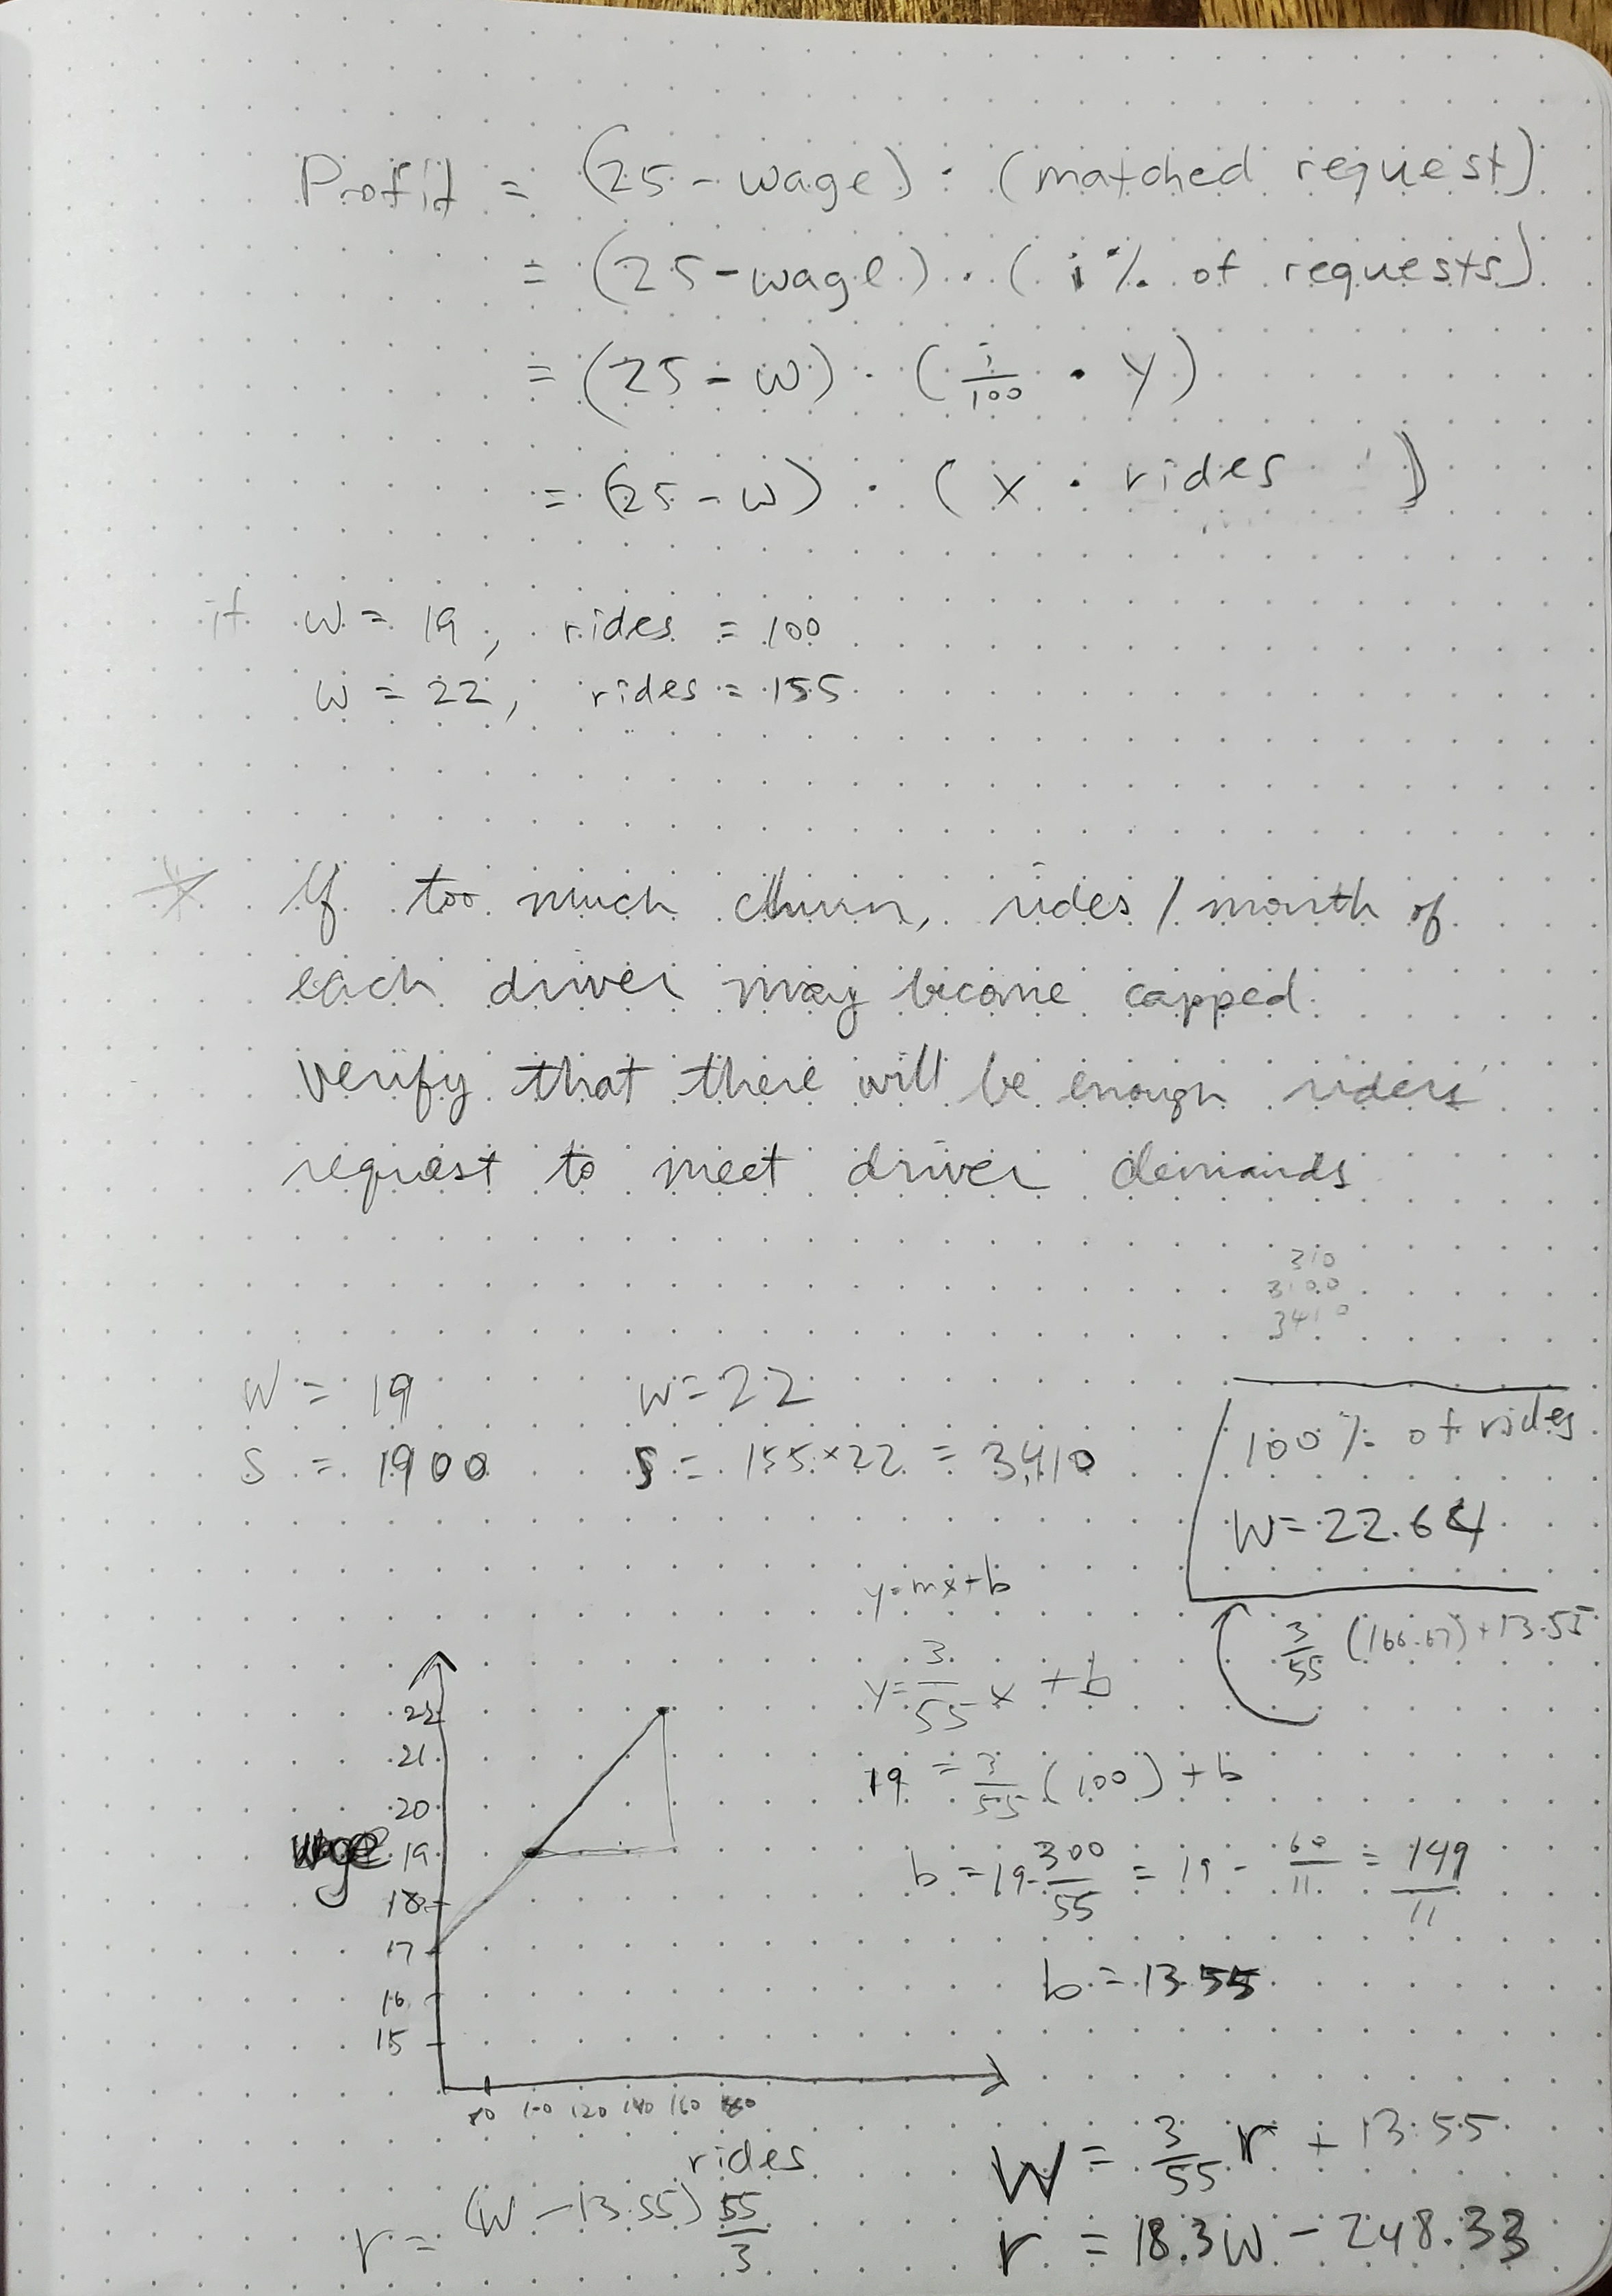 Profit = (25 - wage) · (matched request)
= (25 - wage) · (i % of requests)
= (25 - w) · (i/100 · y)
= (25 - w) · (x · rides )
if w = 19, rides = 100
w = 22, rides = 155
If too much churn, rides / month of
each driver may become capped.
Verify that there will be enough riders
request to meet driver demands
310
3100
3410
W = 19 w = 22
S = 1900 S = 155 × 22 = 3,410
100 % of rides
W = 22.64
3/55 (166.67) + 13.55
y = mx + b
y = 3/55 x + b
19 = 3/55 (100) + b
b = 19 - 300/55 = 19 - 60/11 = 149/11
b = 13.55
22
21
20
wage 19
18
17
16
15
80 100 120 140 160 180
rides
W = 3/55 r + 13.55
r = (W - 13.55) 55/3
r = 18.3W - 248.33